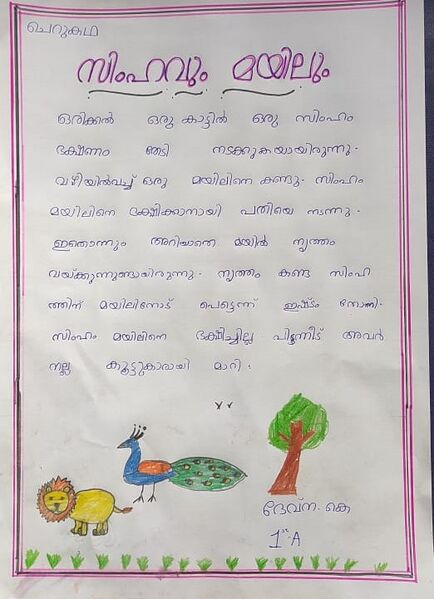 ചെറുകഥ
സിംഹവും മയിലും
ഒരിക്കൽ ഒരു കാട്ടിൽ ഒരു സിംഹം
ഭക്ഷണം തേടി നടക്കുകയായിരുന്നു.
വഴിയിൽവച്ച് ഒരു മയിലിനെ കണ്ടു. സിംഹം
മയിലിനെ ഭക്ഷിക്കാനായി പതിയെ നടന്നു.
ഇതൊന്നും അറിയാതെ മയിൽ നൃത്തം
വയ്ക്കുന്നുണ്ടായിരുന്നു. നൃത്തം കണ്ട സിംഹ
ത്തിന് മയിലിനോട് പെട്ടെന്ന് ഇഷ്ടം തോന്നി.
സിംഹം മയിലിനെ ഭക്ഷിച്ചില്ല പിന്നീട് അവർ
നല്ല കൂട്ടുകാരായി മാറി.
ദേവ്ന. കെ
1st A